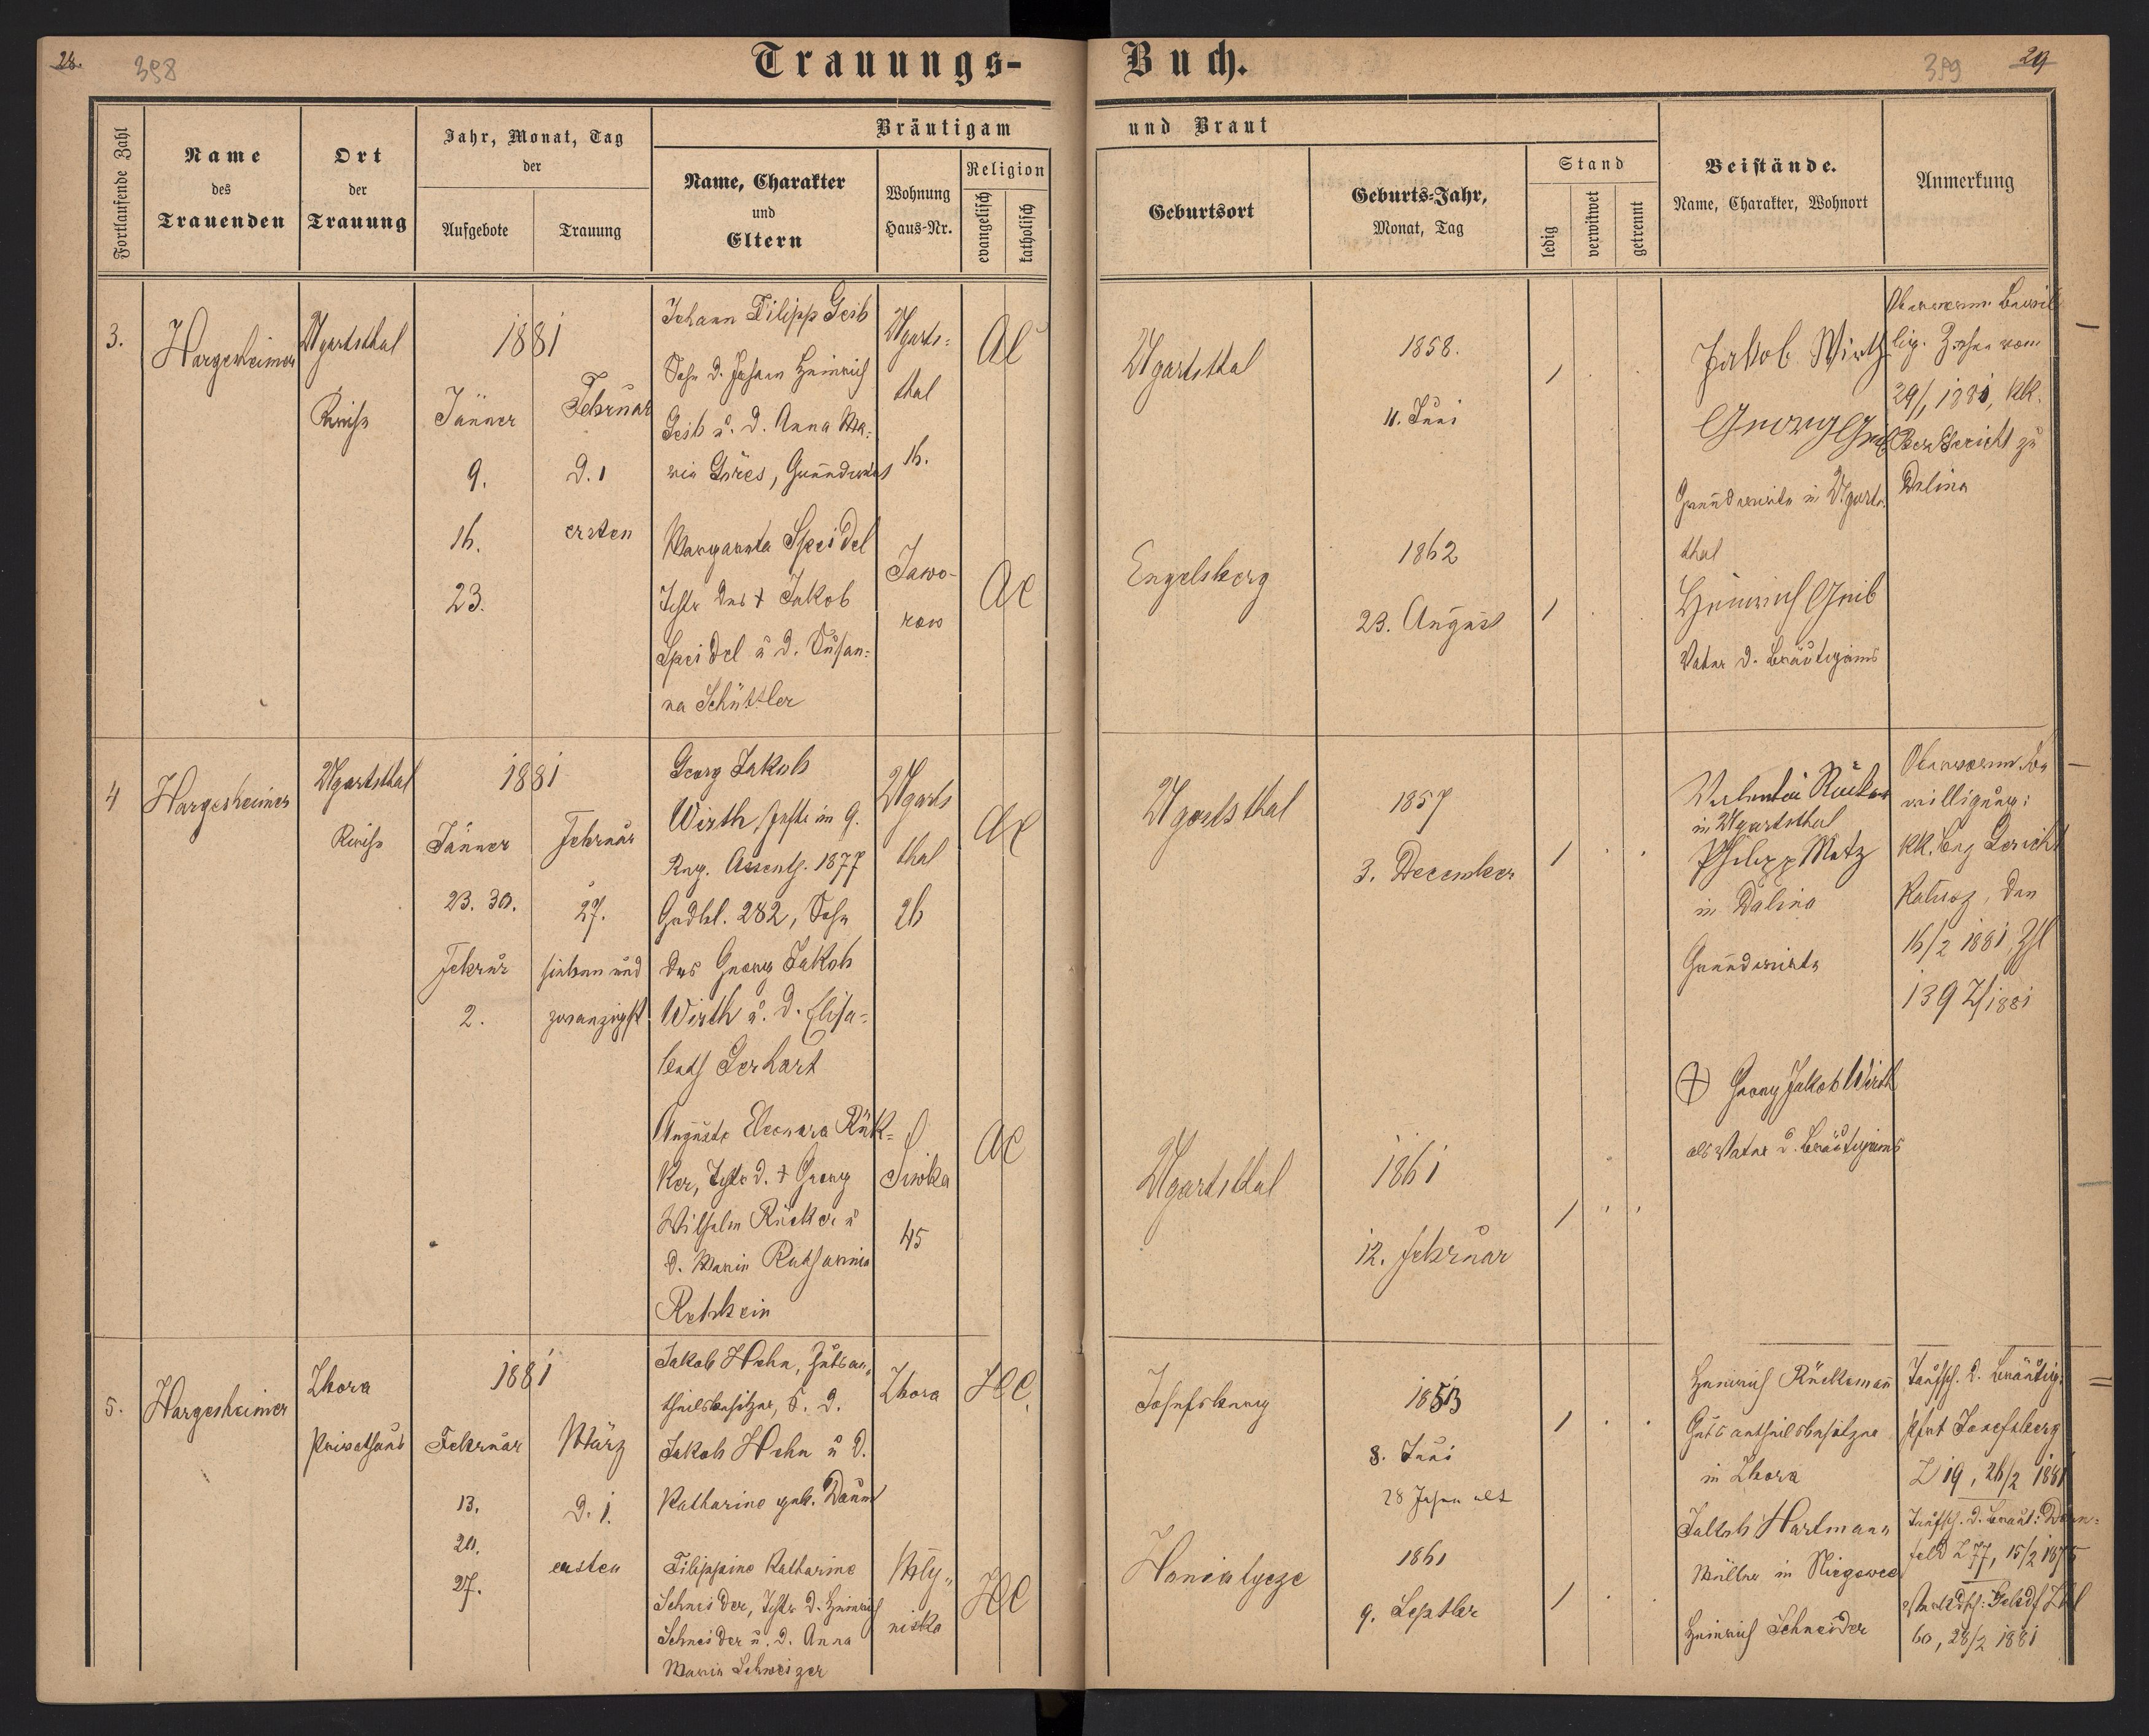 28.
398
Trauungs-
Buch.
399
29
Fortlaufende Zahl
Name
des
Trauenden
Ort
der
Trauung
Jahr, Monat, Tag
der
Aufgebote
Trauung
Bräutigam
Name, Charakter
und
Eltern
Wohnung
Haus-Nr.
Religion
evangelisch
katholisch
und Braut
Geburtsort
Geburts-Jahr,
Monat, Tag
Stand
ledig
verwitwet
getrennt
Beistände.
Name, Charakter, Wohnort
Anmerkung
3.
Hargesheimer
Ugartsthal
Kirche
1881
Jänner
9.
16.
23.
Februar
d. 1
ersten
Johann Filipp Geib
Sohn d. Johann Heinrich
Geib u. d. Anna Ma=
ria Göres, Grundwirt
Ugarts=
thal
16.
AC
Margareta Speidel
Tochter des + Jakob
Speidel u d. Susan=
na Schüttler
Jawo-
row
AC
Ugartsthal
1858.
11. Juni
1
Engelsberg
1862
23. August
1
Jakob Wirth
Georg Geib
Grundwirte in Ugarts
thal
Heinrich Geib
Vater d. Bräutigams
lig. vom
29/1 1881, kk.
Bez Gericht zu
Dolina
4
Hargesheimer
Ugartsthal
Kirche
1881
Jänner
23. 30.
Februar
2.
Februar
27.
sieben und
zwanzigst
Georg Jakob
Wirth, im 9.
Reg. Assentj. 1877
Grdbl. 282, Sohn
des Georg Jakob
Wirth u. d. Elisa=
beth Gerhart
Ugarts
thal
26
AC
Auguste Eleonora Rük=
ker, Tochter d. + Georg
Wilhelm Rücker u
d. Maria Katharina
Rebstein
Siwka
45
AC
Ugartsthal
1857
3. December
1
Ugartsthal
1861
12. Februar
1
Valentin Rücker
in Ugartsthal
Philipp Metz
in Dolina
Grundwirte
+ Georg Jakob Wirth
als Vater d. Bräutigams
willigung:
kk. Bez Gericht
Kalusz, den
16/2 1881, Zl
1392/1881
5.
Hargesheimer
Zbora
Privathaus
1881
Februar
13.
20.
27.
März
d. 1.
ersten
Jakob Hehn, Gutsan=
theilsbesitzer, S. d.
Jakob Hehn u d.
Katharina geb. Daum
Zbora
HC.
Filippine Katharine
Schneider, Tochter d. Heinrich
Schneider u. d. Anna
Maria Schweizer
Mły=
niska
HC
Josefsberg
1853
8. Juni
28 Jahre alt
1
Honiatycze
1861
9. Septber
1
Heinrich Rückemann
Gutsantheilsbesitzer
in Zbora
Jakob Hartmann
Müller in Niegowce
Heinrich Schneider
Taufsch. d. Bräutig:
Pfrt Josefsberg
Z 19, 26/2 1881
Taufsch. d. Braut: Dorn=
feld Z 77, 15/2 1875
60, 28/2 1881